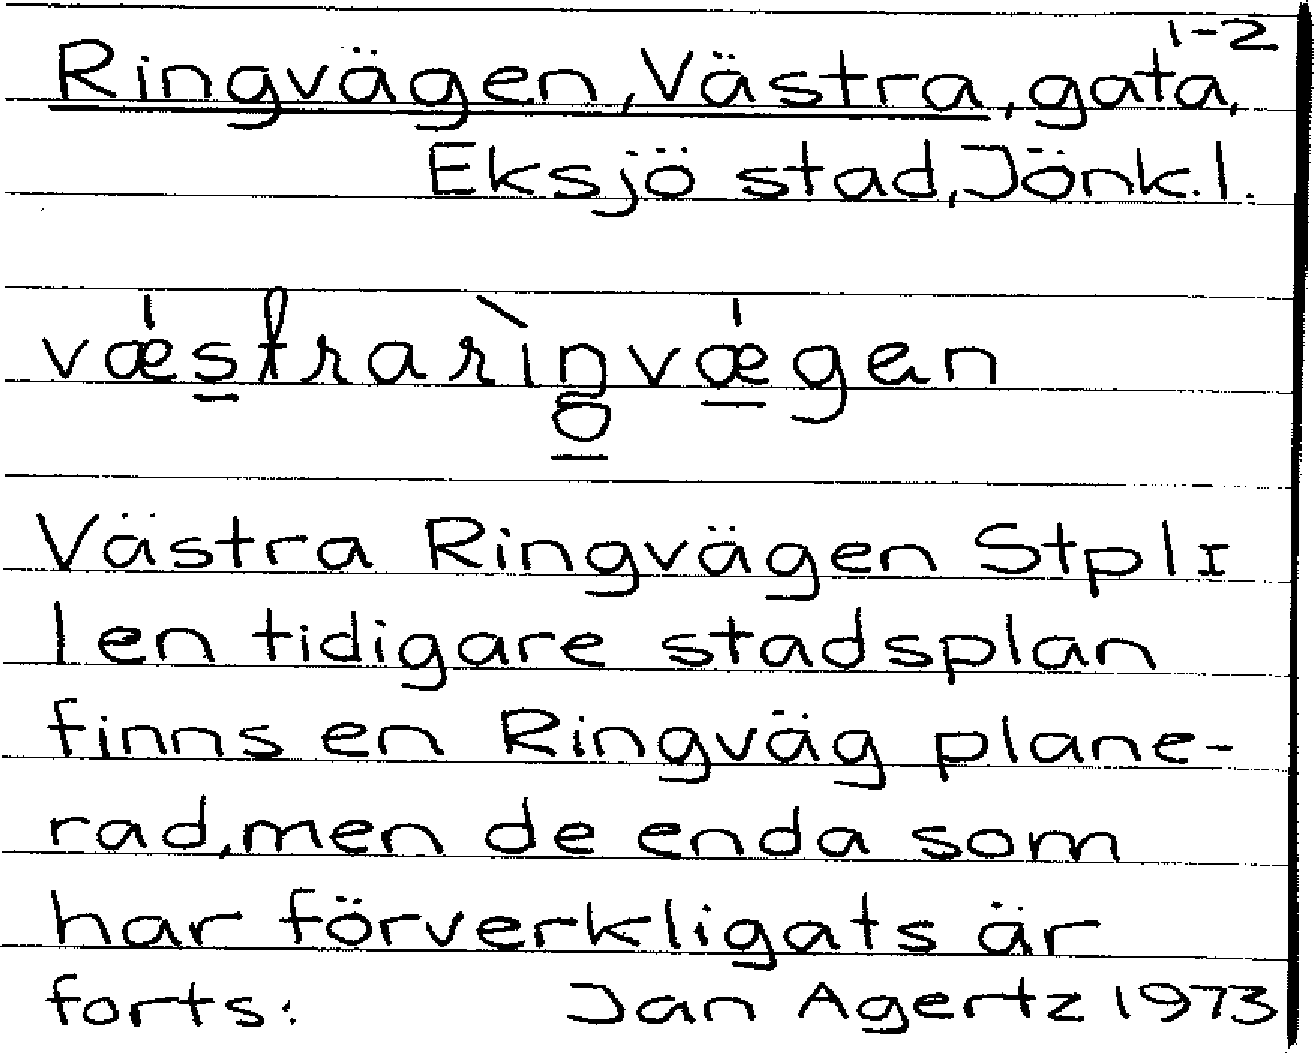 1-2
Ringvägen, Västra, gata,
Eksjö stad, Jönk.l.
væ̍s̲traràŋvæ̲̍gen
Västra Ringvägen Stpl I
I en tidigare stadsplan
finns en Ringväg plane-
rad, men de enda som
har förverkligats är
forts: Jan Agertz 1973